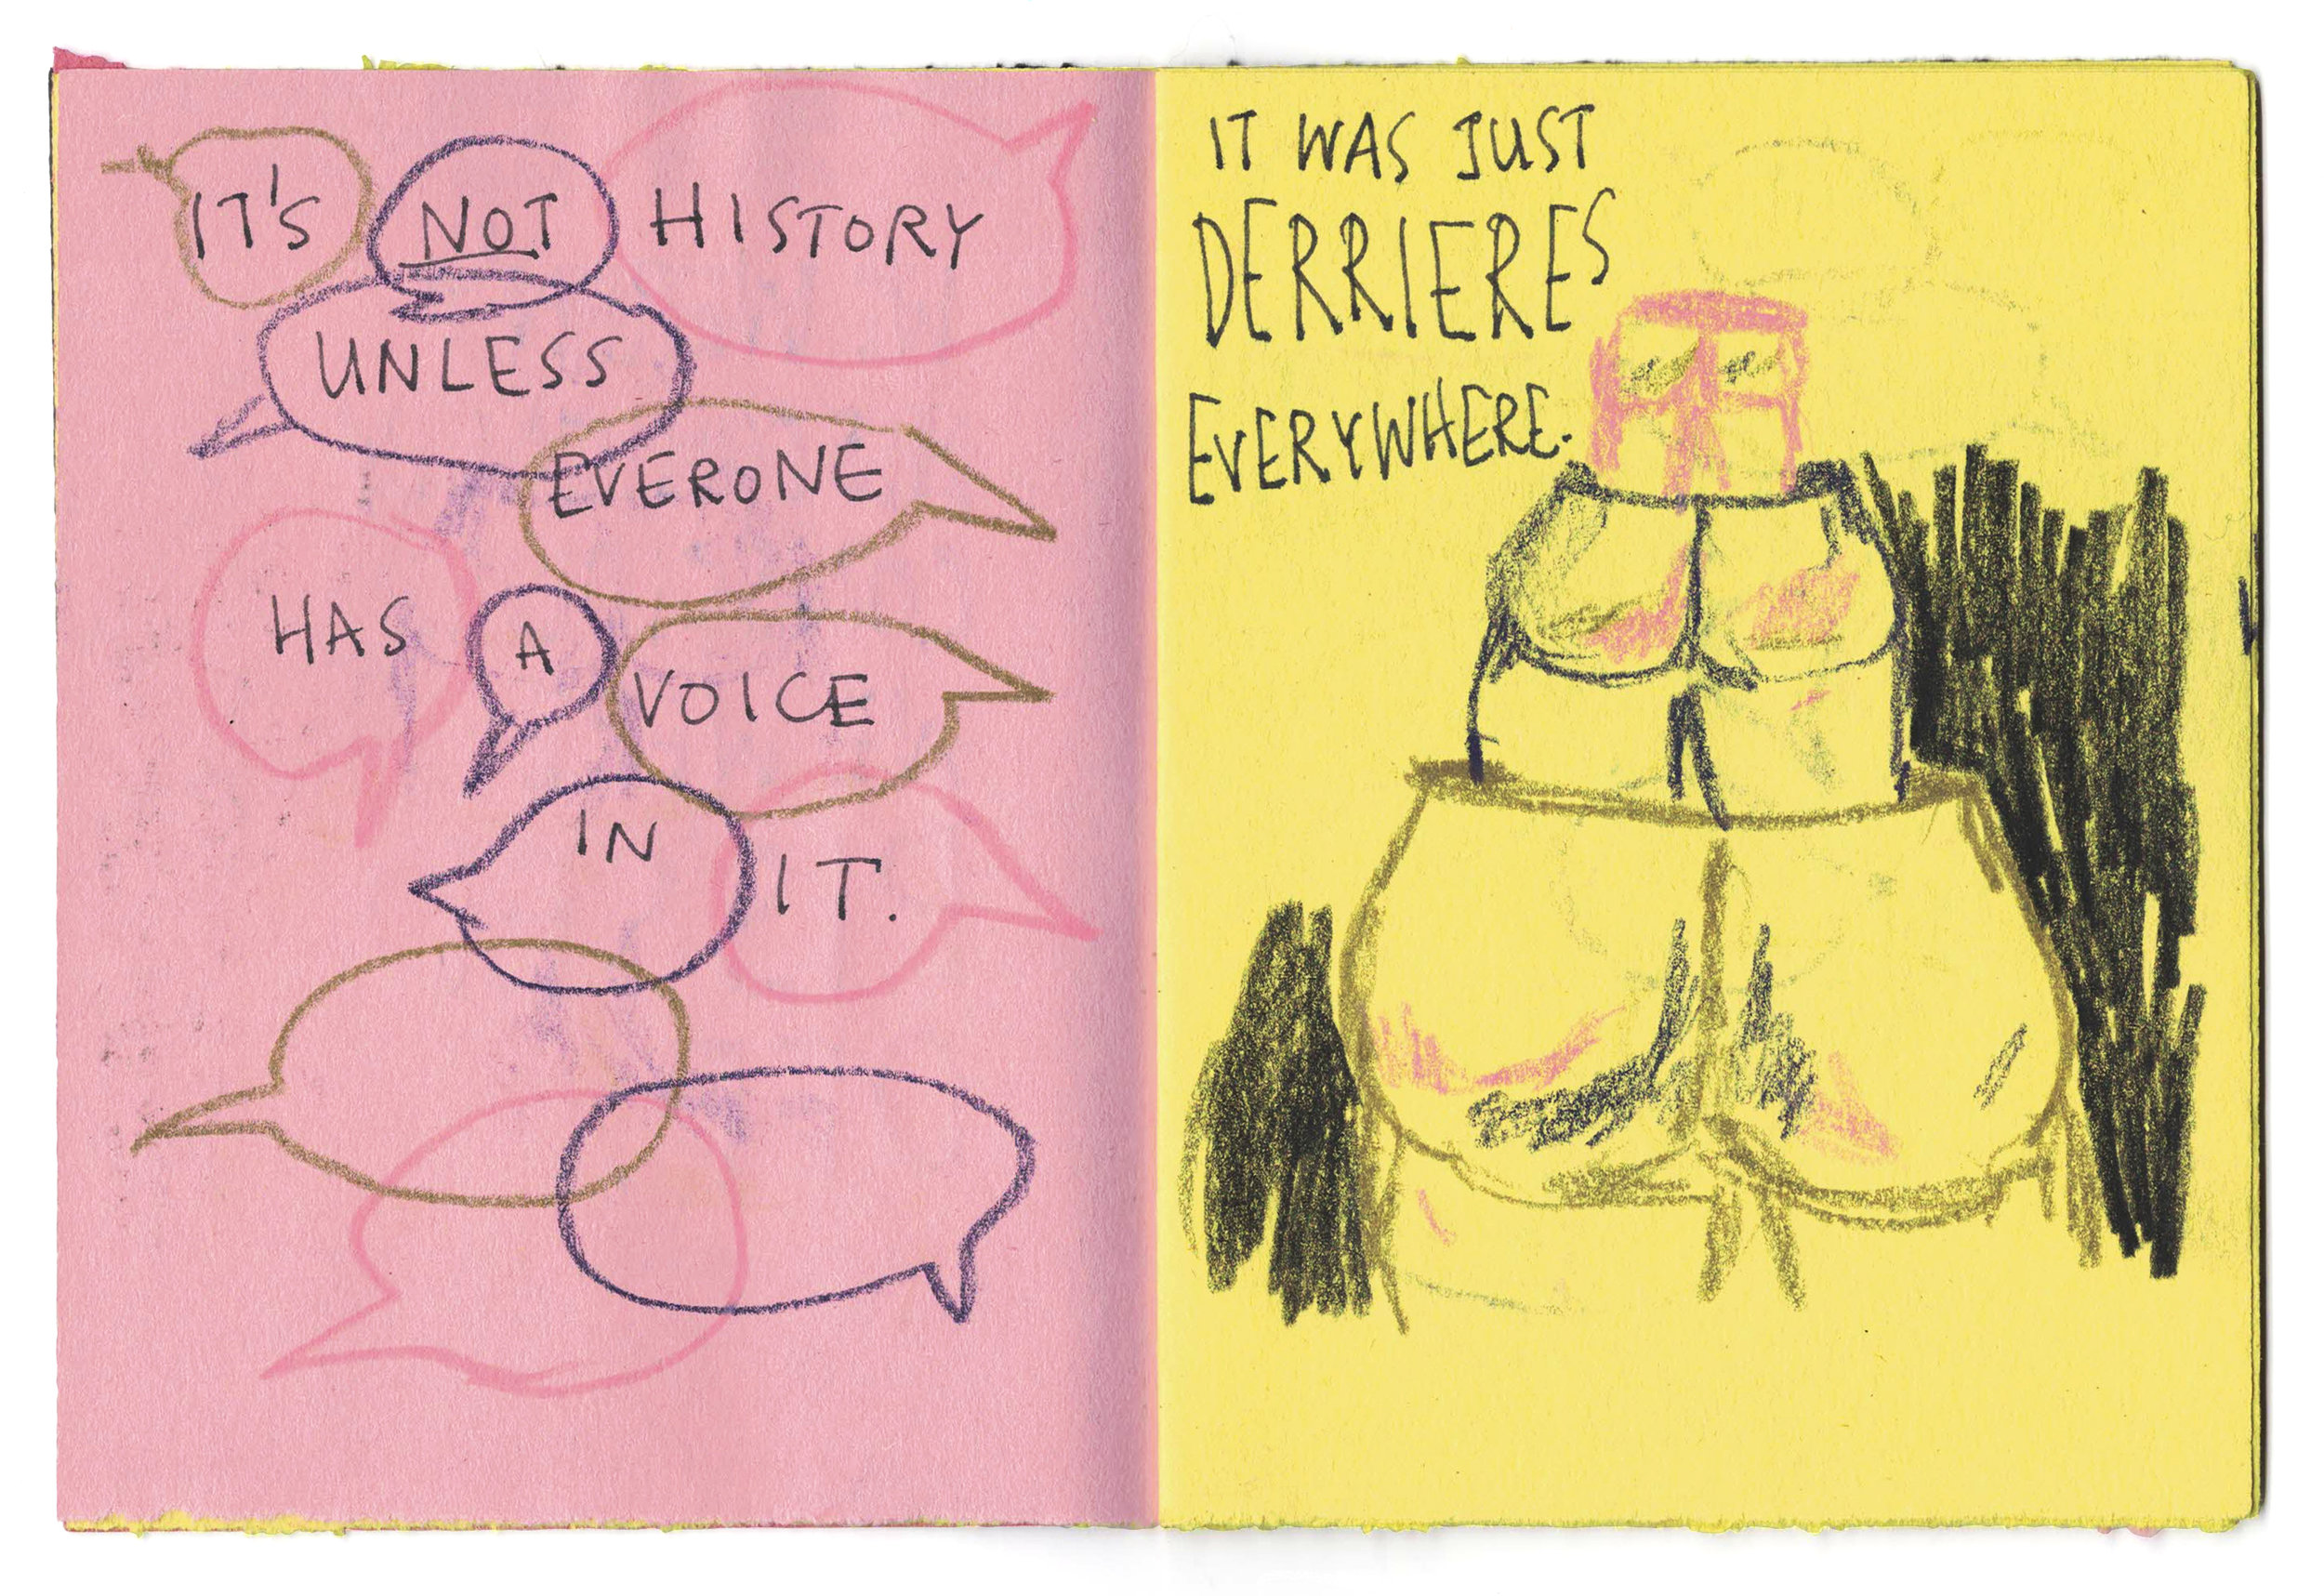 IT'S NOT HISTORY
UNLESS
EVERONE
HAS A VOICE
IN IT.
IT WAS JUST
DERRIERES
EVERYWHERE.